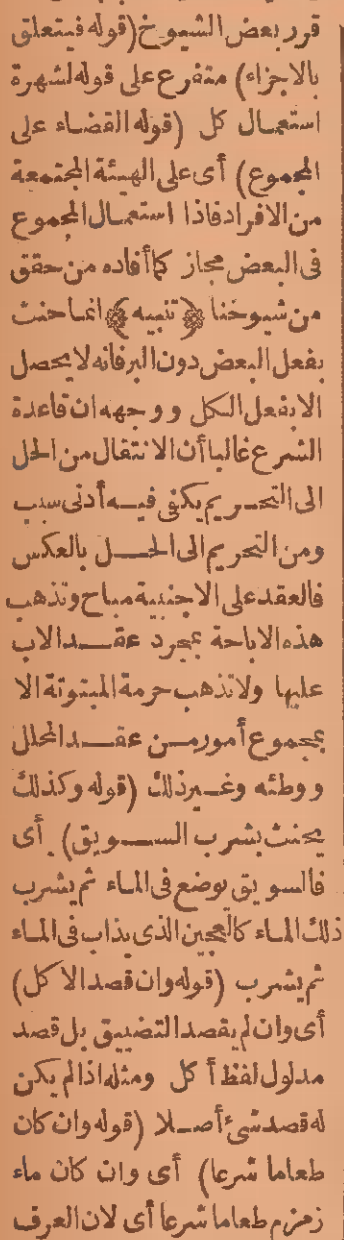 قرر بعض الشيوخ (قوله فيتعلق
بالاجزاء) متفرع على قوله لشهرة
استعمال كل (قوله القضاء على
المجموع) أى على الهيئة المجتمعة
من الافراد فاذا استعمال المجموع
فى البعض مجاز كما أفاده من حقق
من شيوخنا ﴿تنبيه﴾ انما حنث
بفعل البعض دون البر فانه لا يحصل
الا بفعل الكل ووجهه ان قاعدة
الشرع غالبا أن الانتقال من الحل
الى التحريم يكفى فيه أدنى سبب
ومن التحريم الى الحل بالعكس
فالعقد على الاجنبية مباح وتذهب
هذه الاباحة بمجرد عقد الاب
عليها ولا تذهب حرمة المبتوتة الا
بمجموع أمور من عقد المحلل
ووطئه وغير ذلك (قوله وكذلك
يحنث بشرب السويق) أى
فالسويق يوضع فى الماء ثم يشرب
ذلك الماء كالعجين الذى يذاب فى الماء
ثم يشرب (قوله وان قصد الاكل)
أى وان لم يقصد التضييق بل قصد
مدلول لفظ أكل ومثله اذا لم يكن
له قصد شئ أصلا (قوله وان كان
طعاما شرعا) أى وان كان ماء
زمزم طعاما شرعا أى لان العرف